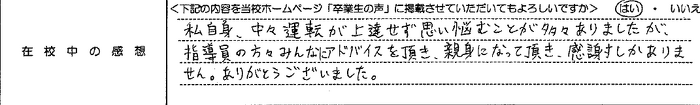 <下記の内容を当校ホームページ「卒業生の声」に掲載させていただいてもよろしいですか> はい ・ いいえ
在校中の感想
私自身、中々運転が上達せず思い悩むことが多々ありましたが、
指導員の方々みんなにアドバイスを頂き、親身になって頂き、感謝すしかありま
せん。ありがとうございました。